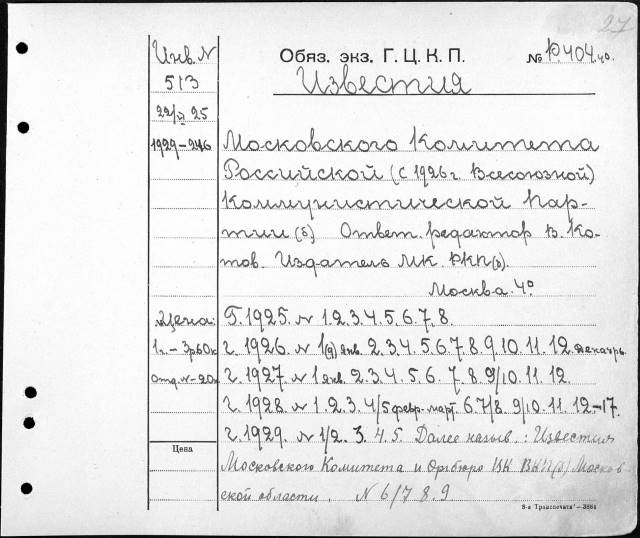 27
Инв. N
Обяз. экз. Г. Ц. К. П.
№ Р.404.4º.
513
Известия
22/VI 25
1929-246
Московского Комитета
Российской (с 1926 г. Всесоюзной)
Коммунистической Пар-
тии (б.) Ответ. редактор В. Ко-
тов. Издатель МК. РКП(б).
Москва. 4º
Цена:
Г. 1925. № 1.2.3.4.5.6.7.8.
1 г. – 3р.60к
г. 1926. № 1(9) янв. 2.3.4.5.6.7.8.9.10.11.12. декабрь.
отд. № – 20к
г. 1927. № 1 янв. 2.3.4.5.6.7.8.9/10.11.12.
г. 1928. № 1.2.3.4/5 февр.-март. 6.7/8.9/10.11.12-17.
г. 1929. № 1/2.3.4.5. Далее назыв.: Известия
Цена
Московского Комитета и Оргбюро ЦК ВКП(б) Москов
ской области. N 6/7 8.9.
8-я Транспечать – 3884